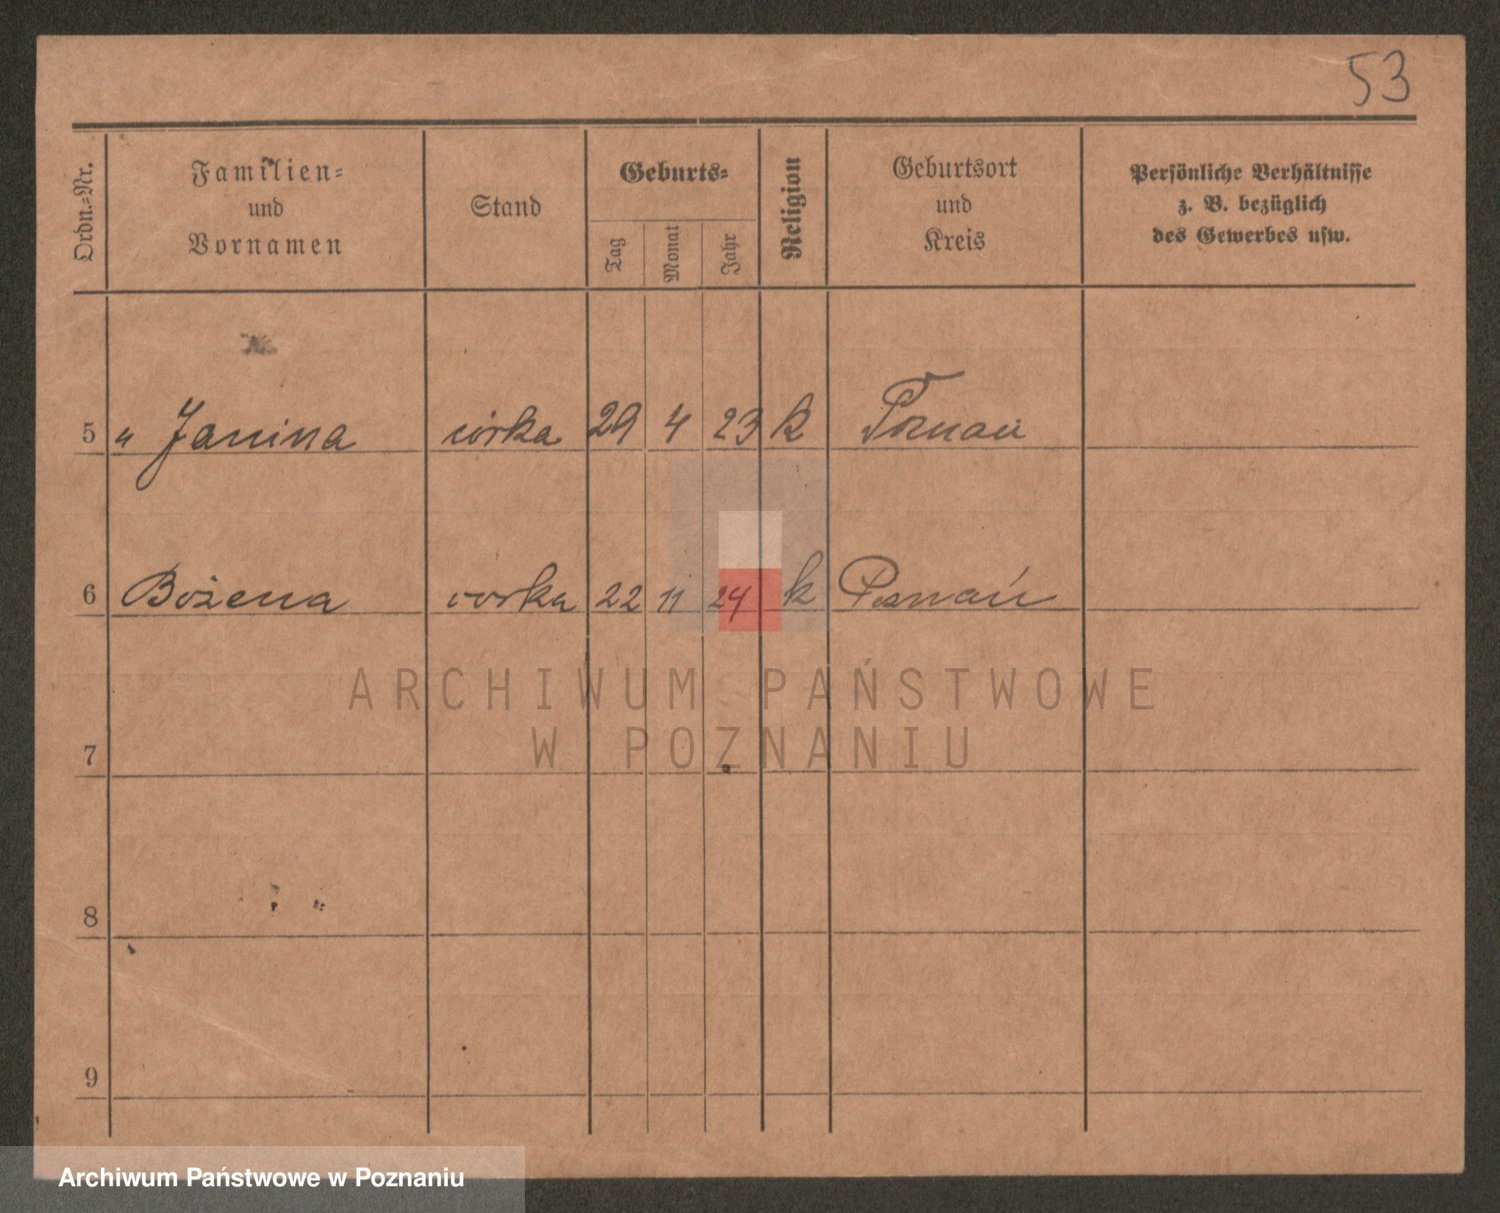 53
Ordn.-Nr.
Familien-
und
Vornamen
Stand
Geburts-
Tag
Monat
Jahr
Religion
Geburtsort
und
Kreis
Persönliche Verhältnisse
z. B. bezüglich
des Gewerbes usw.
5 " Janina córka 29 4 23 k Poznań
6 Bożena corka 22 11 24 k Poznań
ARCHIWUM PAŃSTWOWE
W POZNANIU
7
8
9
Archiwum Państwowe w Poznaniu